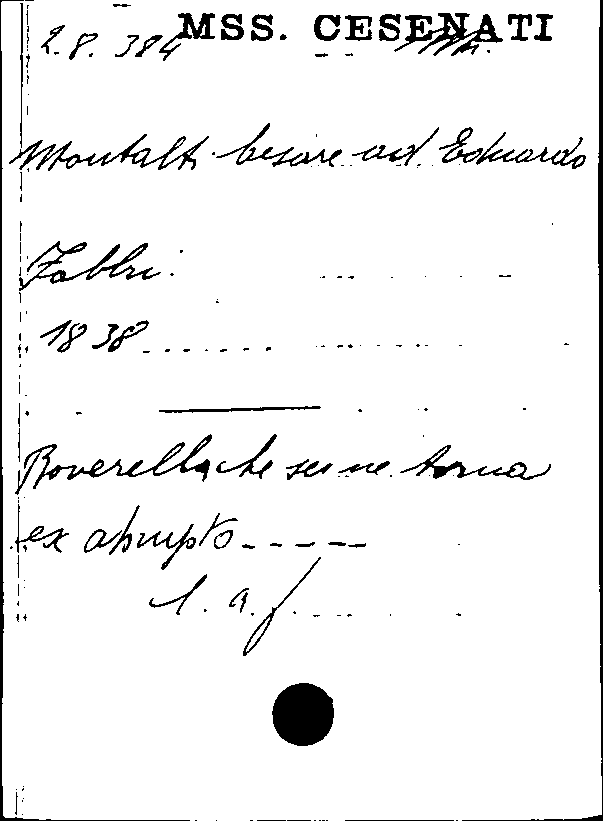 MSS. CESENATI
2.8. 384
Montalti Cesare ad Eduardo
Fabbri.
1838
Roverella che se ne torna
ex abrupto - - - - -
l. a. f.